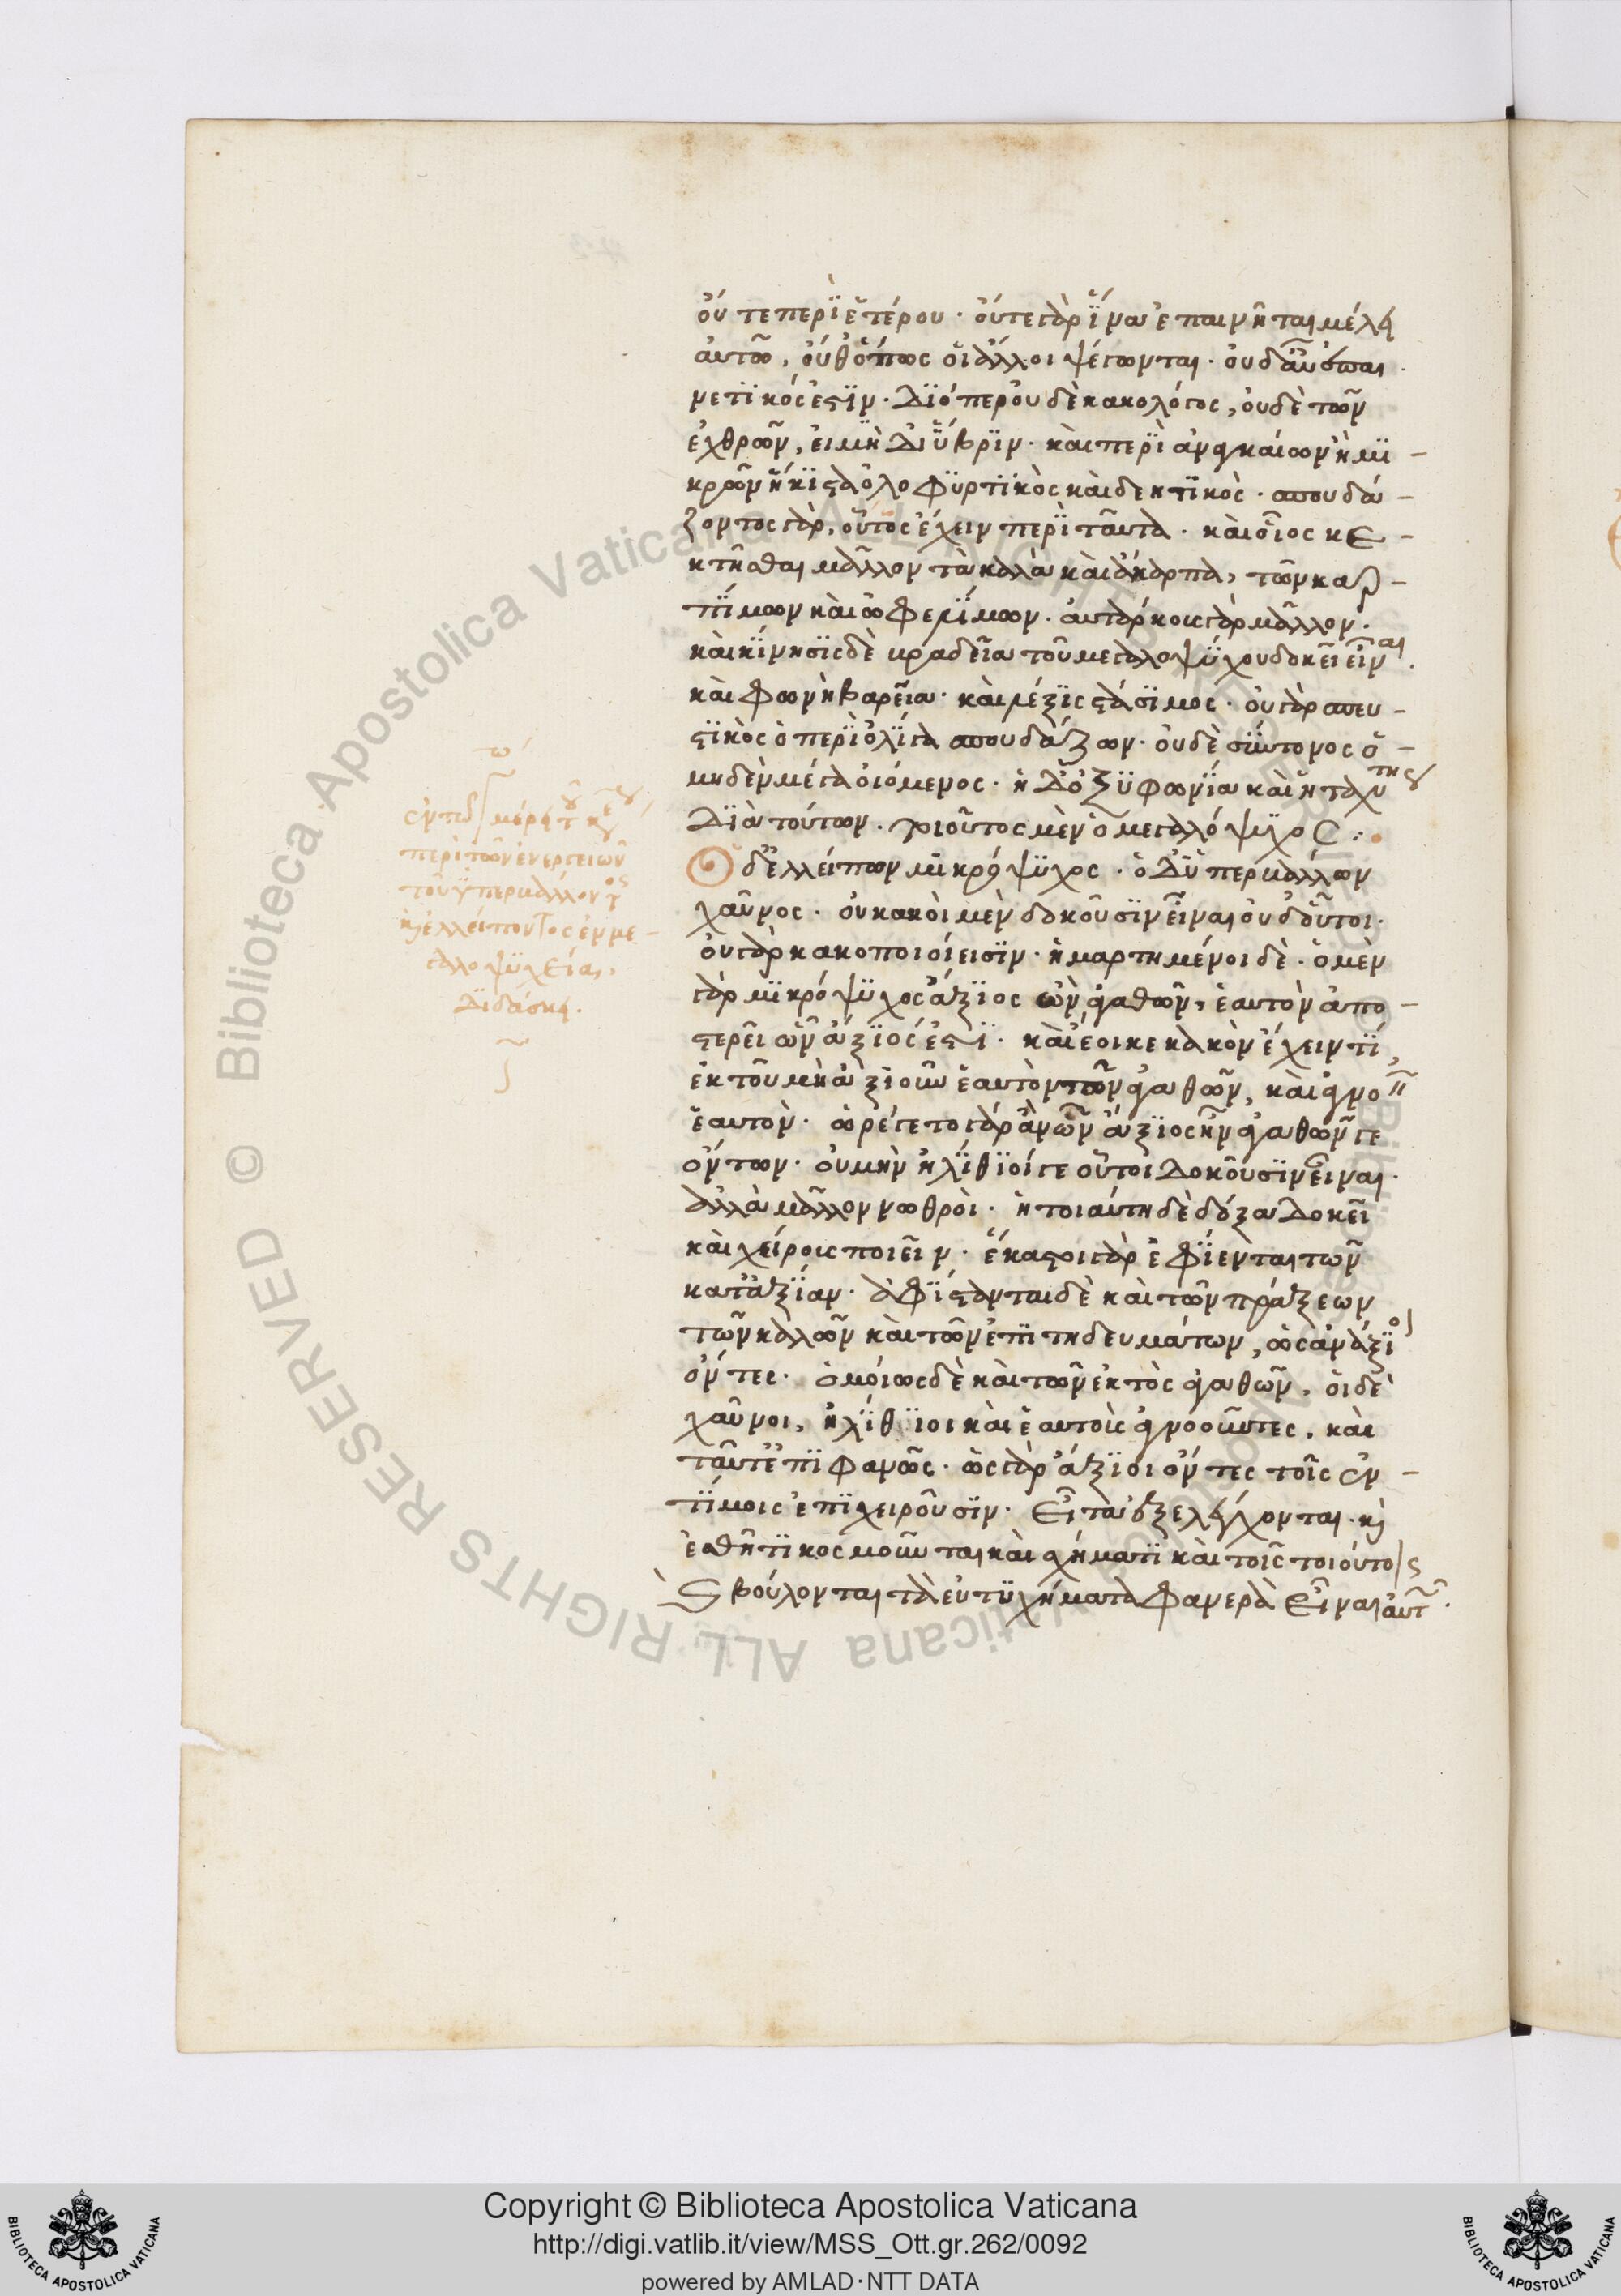 οὔτε περὶ ἑτέρου · οὔτε γὰρ ἵνα ἐπαινῆται μέλει
αὐτῶ, οὔθ' ὅπως οἱ ἄλλοι ψέγωνται · οὐδ' αὖ ἐπαι
νετικός ἐστιν · διόπερ οὐδὲ κακολόγος, οὐδὲ τῶν
ἐχθρῶν, εἰ μὴ δι' ὕβριν · καὶ περὶ ἀναγκαίων ἢ μι -
κρῶν ἥκιστα ὀλοφυρτικὸς καὶ δεητικὸς · σπουδά -
ζοντος γὰρ, οὕτος ἔχειν περὶ ταῦτα · καὶ οἷος κε -
κτῆσθαι μᾶλλον τὰ καλὰ καὶ ἄκαρπα, τῶν καρ -
πίμων καὶ ὠφελίμων · αὐτάρκους γὰρ μᾶλλον ·
καὶ κίνησις δὲ βραδεῖα τοῦ μεγαλοψύχου δοκεῖ εἶναι ·
καὶ φωνὴ βαρεῖα · καὶ λέξις στάσιμος · οὐ γὰρ σπευ -
στικὸς ὁ περὶ ὀλίγα σπουδάζων · οὐδὲ σύντονος ὁ -
μηδὲν μέγα οἰόμενος · ἡ δ' ὀξυφωνία καὶ ἡ ταχυτὴς
διὰ τούτων · τοιοῦτος μὲν ὁ μεγαλόψυχος :·
Ὁ δ' ἐλλείπων μικρόψυχος · ὁ δ' ὑπερβάλλων
χαῦνος · οὐ κακοὶ μὲν δοκοῦσιν εἶναι οὐδ' οὗτοι ·
οὐ γὰρ κακοποιοί εἰσιν · ἡμαρτημένοι δὲ · ὁ μὲν
γὰρ μικρόψυχος ἄξιος ὢν ἀγαθῶν, ἑαυτὸν ἀπο -
στερεῖ ὧν ἄξιός ἐστι · καὶ ἔοικε κακὸν ἔχειν τί,
ἐκ τοῦ μὴ ἀξιοῦν ἑαυτὸν τῶν ἀγαθῶν, καὶ ἀγνο
ἑαυτὸν · ὠρέγετο γὰρ ἂν ὧν ἄξιος ἦν ἀγαθῶν γε
ὄντων · οὐ μὴν ἠλίθιοί γε οὗτοι δοκοῦσιν εἶναι ·
ἀλλὰ μᾶλλον νωθροὶ · ἡ τοιαύτη δὲ δόξα δοκεῖ
καὶ χείρους ποιεῖν · ἕκαστοι γὰρ ἐφίενται τῶν
κατ' ἀξίαν · ἀφίστανται δὲ καὶ τῶν πράξεων
τῶν καλῶν καὶ τῶν ἐπιτηδευμάτων, ὡς ἀνάξιοι
ὄντες · ὁμοίως δὲ καὶ τῶν ἐκτὸς ἀγαθῶν, οἱ δὲ
χαῦνοι, ἠλίθιοι καὶ ἑαυτοὺς ἀγνοοῦντες, καὶ
ταῦτ' ἐπιφανῶς · ὡς γὰρ ἄξιοι ὄντες τοῖς ἐν -
τίμοις ἐπιχειροῦσιν · εἶτα ἐξελέγχονται · καὶ
ἐσθῆτι κοσμοῦνται καὶ σχήματι καὶ τοῖς τοιούτοις
καὶ βούλονται τὰ εὐτυχήματα φανερὰ εἶναι αὐτῶν ·
περὶ τῶν ἐνεργειῶν
τοῦ ὑπερβάλλοντος
καὶ ἐλλείποντος ἐν με -
γαλοψυχείας,
διδάσκει.
Copyright © Biblioteca Apostolica Vaticana
http://digi.vatlib.it/view/MSS_Ott.gr.262/0092
powered by AMLAD·NTT DATA
BIBLIOTECA APOSTOLICA VATICANA
BIBLIOTECA APOSTOLICA VATICANA
© Biblioteca Apostolica Vaticana ALL RIGHTS RESERVED